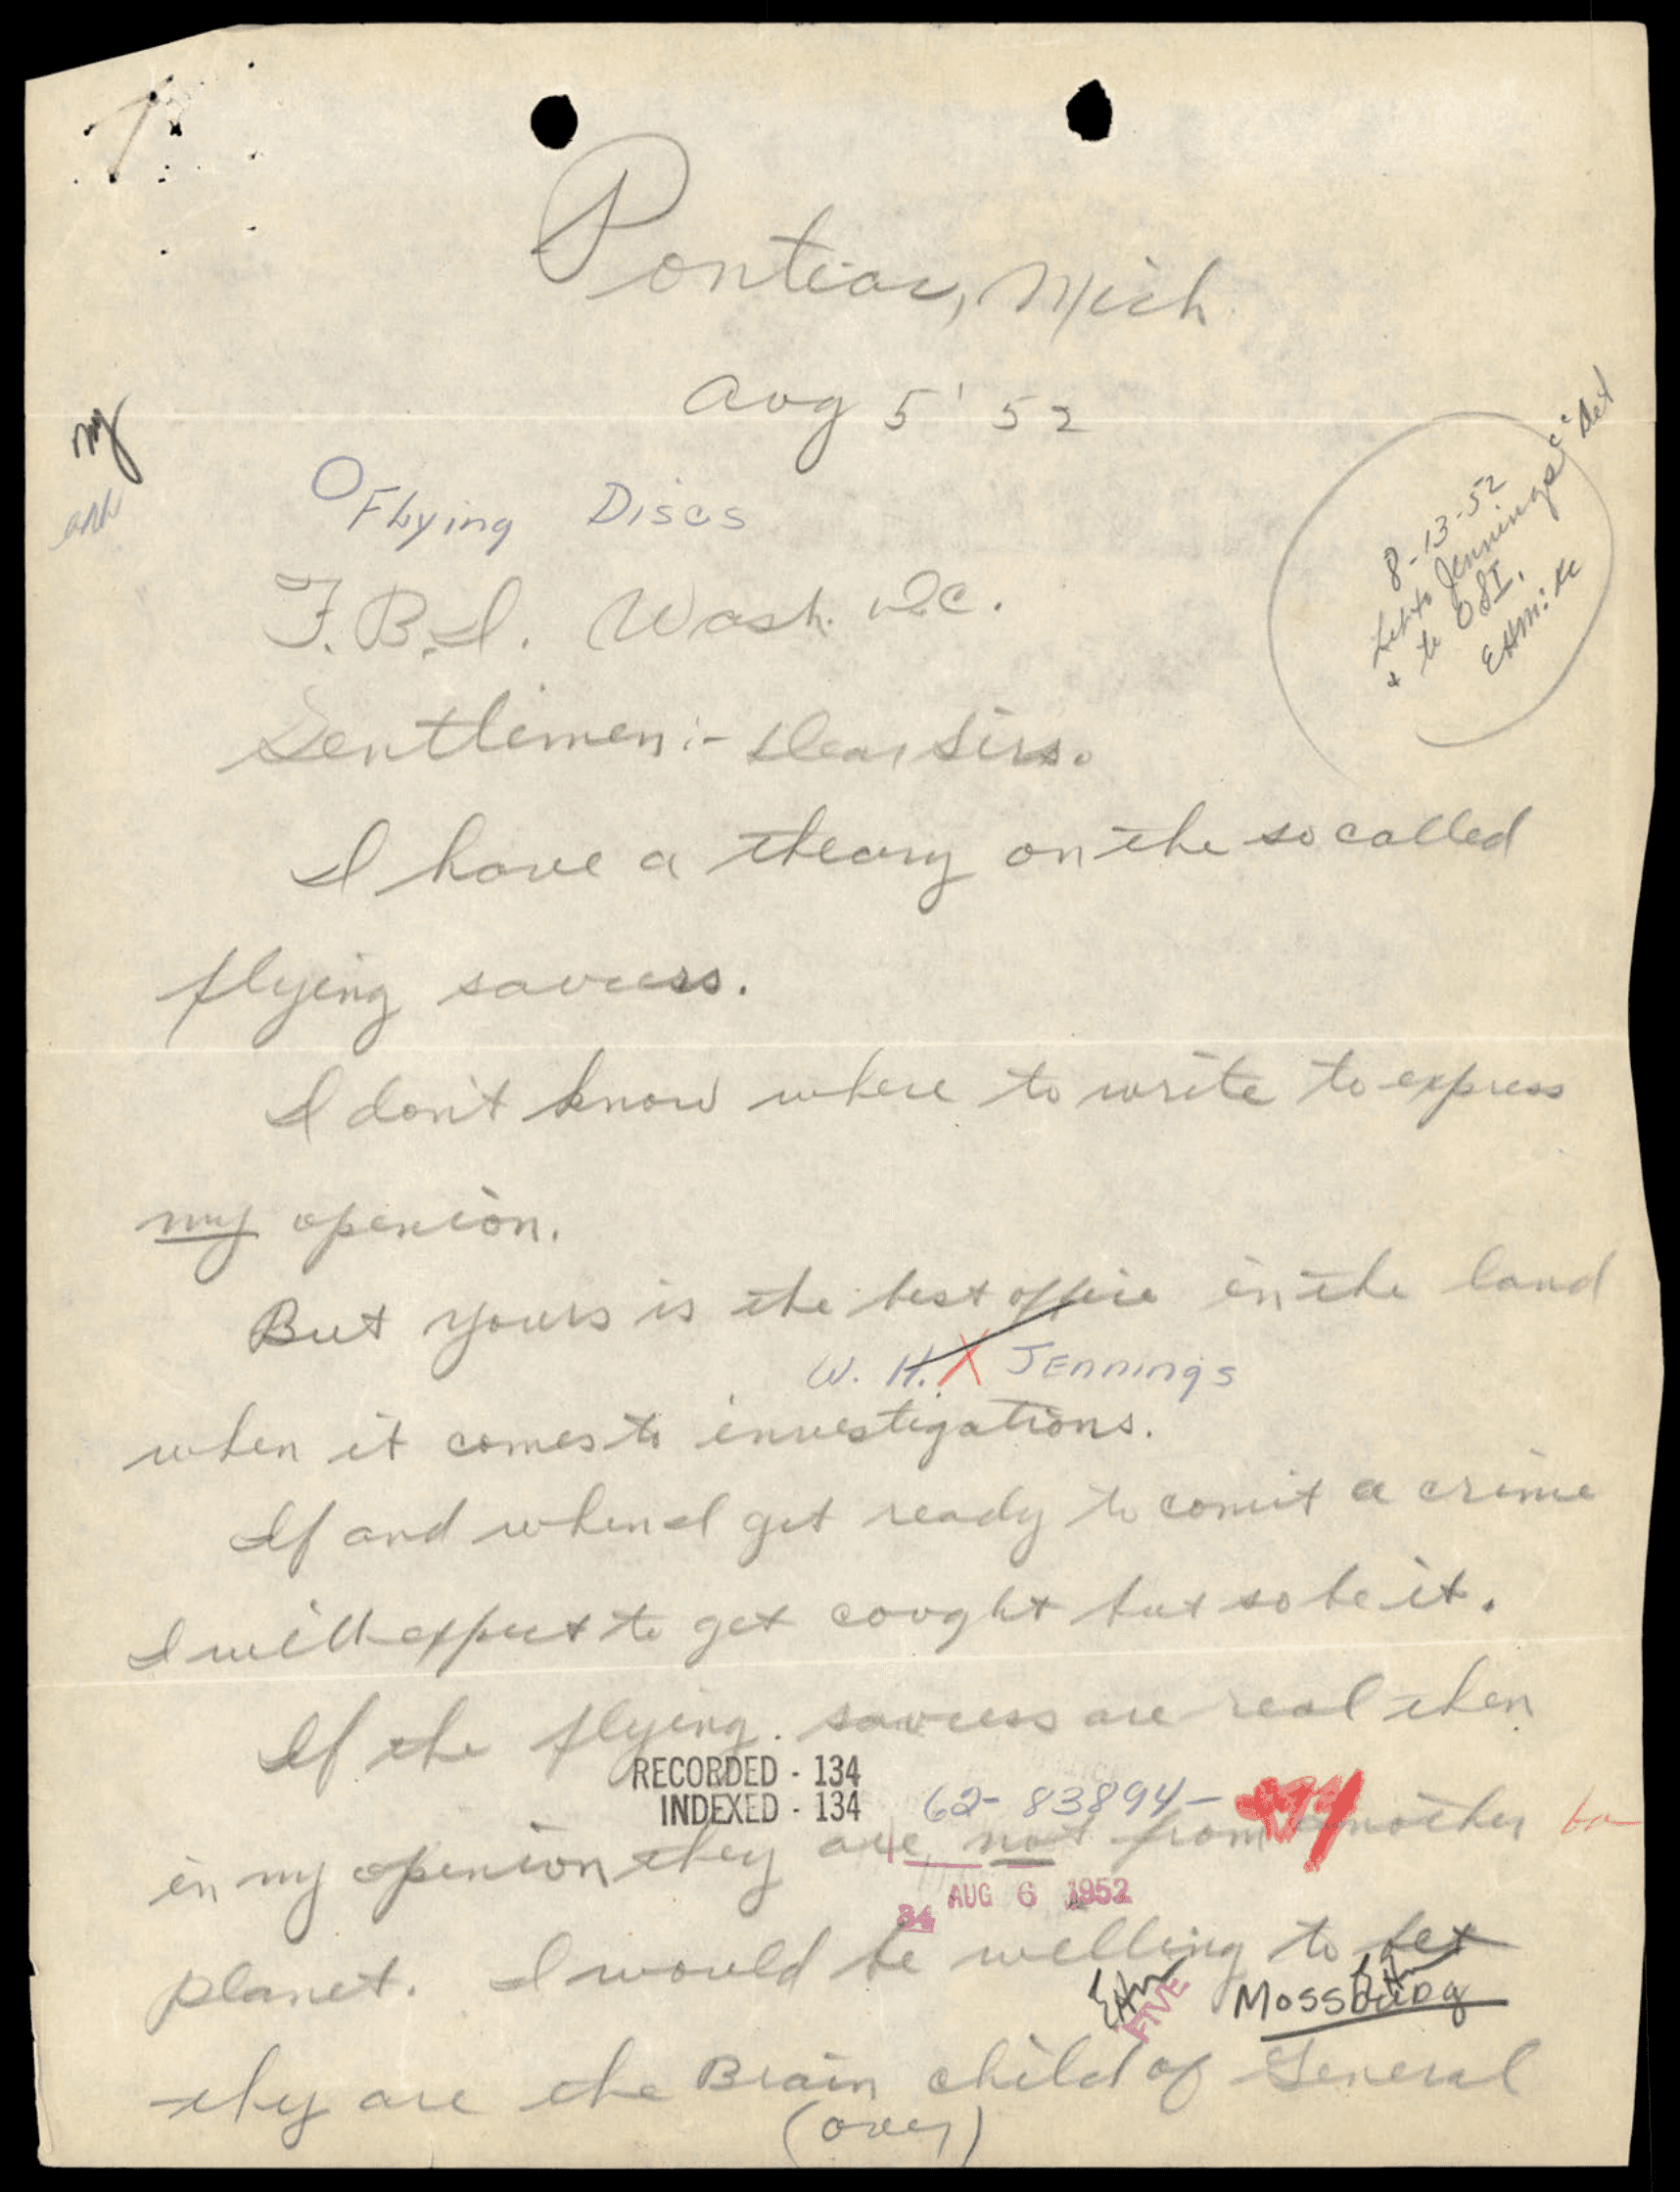 Pontiac, Mich
Aug 5' 52
my
Flying Discs
8-13-52
Let to Jennings cc Det
+ to OSI.
EHM:
F.B.I. Wash. D.C.
Gentlimen:- Dear Sirs.
I have a theory on the so called
flying saucers.
I don't know where to write to express
my openion.
But yours is the best office in the land
W. H. X Jennings
when it comes to investigations.
If and when I get ready to comit a crime
I will expect to get cought but so be it.
If the flying saucers are real then
RECORDED - 134
INDEXED - 134
62-83894-
in my openion they are not from another
AUG 6 1952
34
planet. I would be welling to bet
EHM
FIVE
Mossburg
they are the Brain child of General
(over)